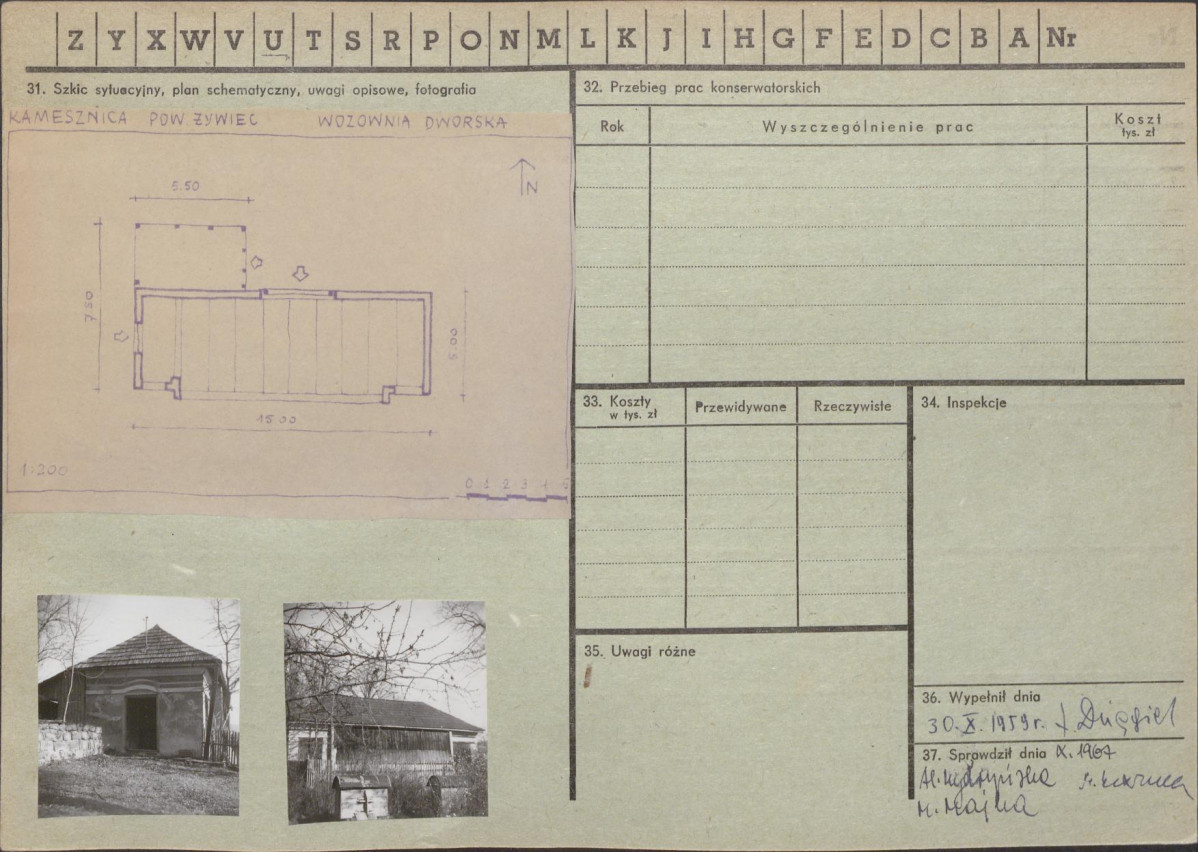 Z Y X W V U T S R P O N M L K J I H G F E D C B A Nr
31. Szkic sytuacyjny, plan schematyczny, uwagi opisowe, fotografia
KAMESZNICA POW. ŻYWIEC WOZOWNIA DWORSKA
N
5.50
7.50
5.00
15.00
1:200
0 1 2 3 4 5
32. Przebieg prac konserwatorskich
Rok
Wyszczególnienie prac
Koszt
tys. zł
33. Koszty
w tys. zł
Przewidywane
Rzeczywiste
34. Inspekcje
35. Uwagi różne
36. Wypełnił dnia
30. X. 1959 r.
37. Sprawdził dnia X. 1967
M. Majka